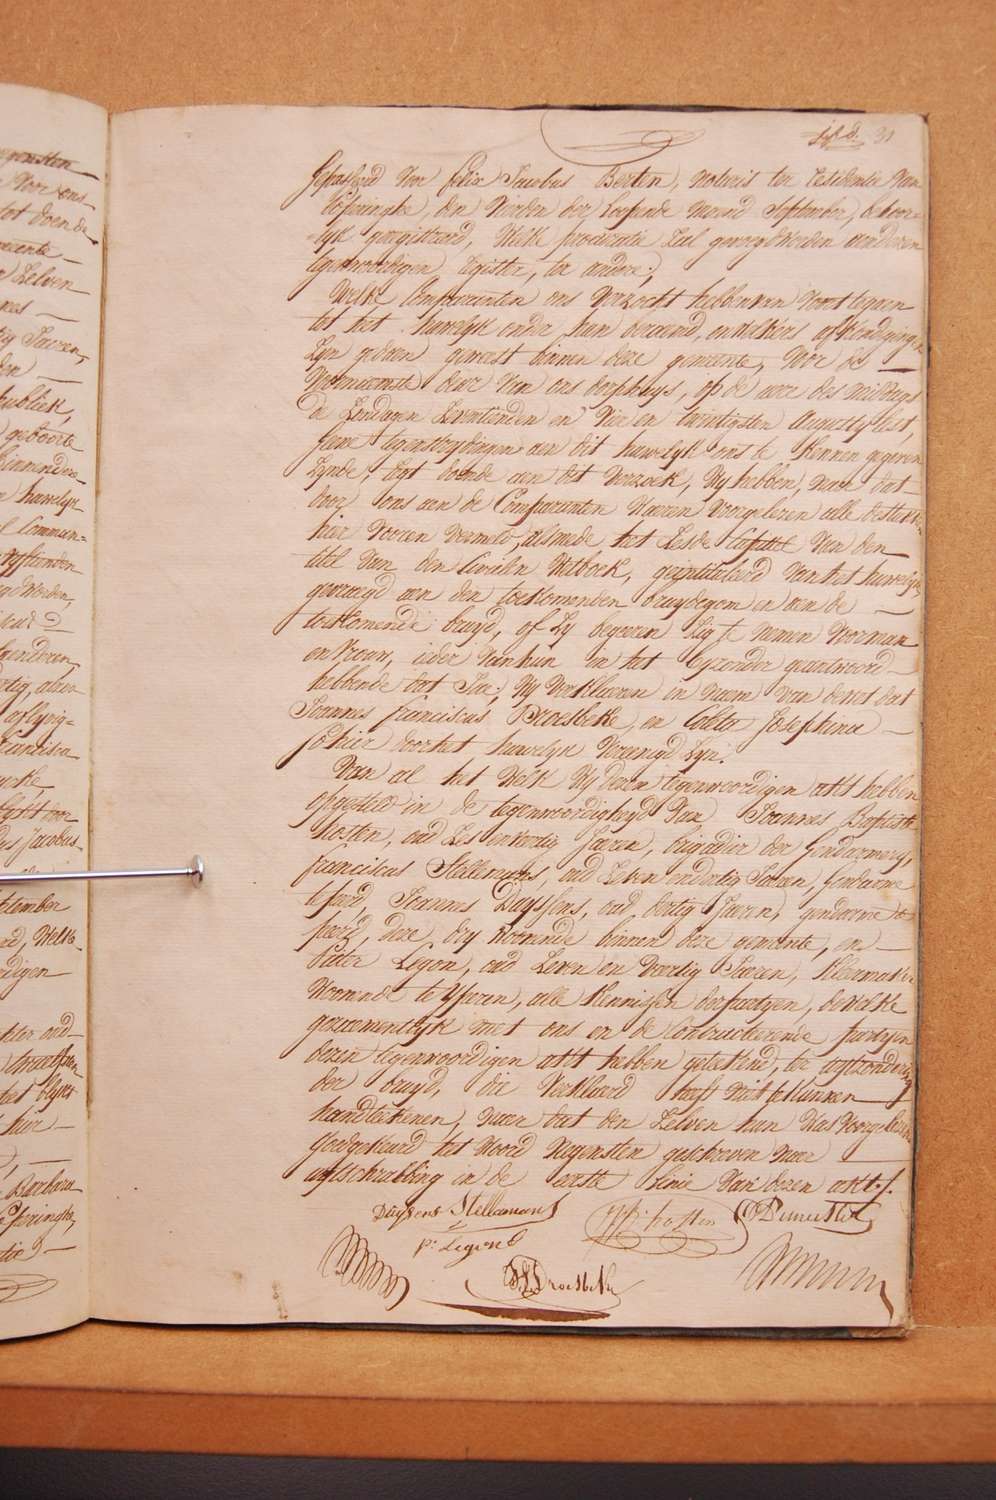 31
Gepasseerd voor felix Jacobus Berten, notaris ter residentie van
Poperinghe, den vierden der loopende maend September, behoor-
-lyk geregistreerd, welke procuratie zal gevoegd worden aen dezen
tegenwoordigen register, ter andere;
Welke Comparanten ons verzocht hebben van voort te gaen
tot het huwelyk onder hun beraemd, en welkers afkondigingen
zyn gedaen geweest binnen deze gemeente, voor de
voornaemste deur van ons dorphuys, op de uere des middags
de zondagen zeventienden en vier en twintigsten Augusty lest
geene tegenstrydingen aen dit huwelyk ons te kennen gegeven
zynde, regt doende aen dit verzoek, wy hebben, naer dat
door ons aen de Comparanten waeren voorgelezen alle de stukken
hier vooren vermeld, alsmede het zesde Capittel van den
titel van den Civielen Wetboek, geintituleerd van het huwelyk,
gevraegd aen den toekomenden bruydegom en aen de
toekomende bruyd, of zy begeeren zig te nemen voor man
en vrouw, ieder van hun in het byzonder geantwoord
hebbende dat Jae; wy verklaeren in naem van de wet dat
Joannes franciscus Proesbeke, en Coleta Josephina
Johier door het huwelyk vereenigd zyn.
Van al het welk wy dezen tegenwoordigen akt hebben
opgesteld in de tegenwoordigheyd van Joannes Baptiste
hosten, oud zes en veertig Jaeren, brigadier der Gendarmery,
franciscus Stellemans, oud zeven en dertig Jaeren, Gendarme
te peerd, Joannes Duyssens, oud dertig Jaeren, gendarme te
peerd, deze dry woonende binnen deze gemeente, en
Pieter Legon, oud zeven en veertig Jaeren, kleermaker
woonende te Yperen, alle kennissen der partyen, dewelke
gezaementlyk met ons en de Contracteerende partyen
dezen tegenwoordigen akt hebben geteekend, ter uytzondering
der bruyd, die verklaerd heeft niet te kunnen
handteekenen, naer dat den zelven hun was voorgelezen
Goedgekeurd het woord negensten geschreven naer
uytschrabbing in de eerste linie van dezen akt.
Duysens Stellemans
hosten
Pr Legon
Proesbeke